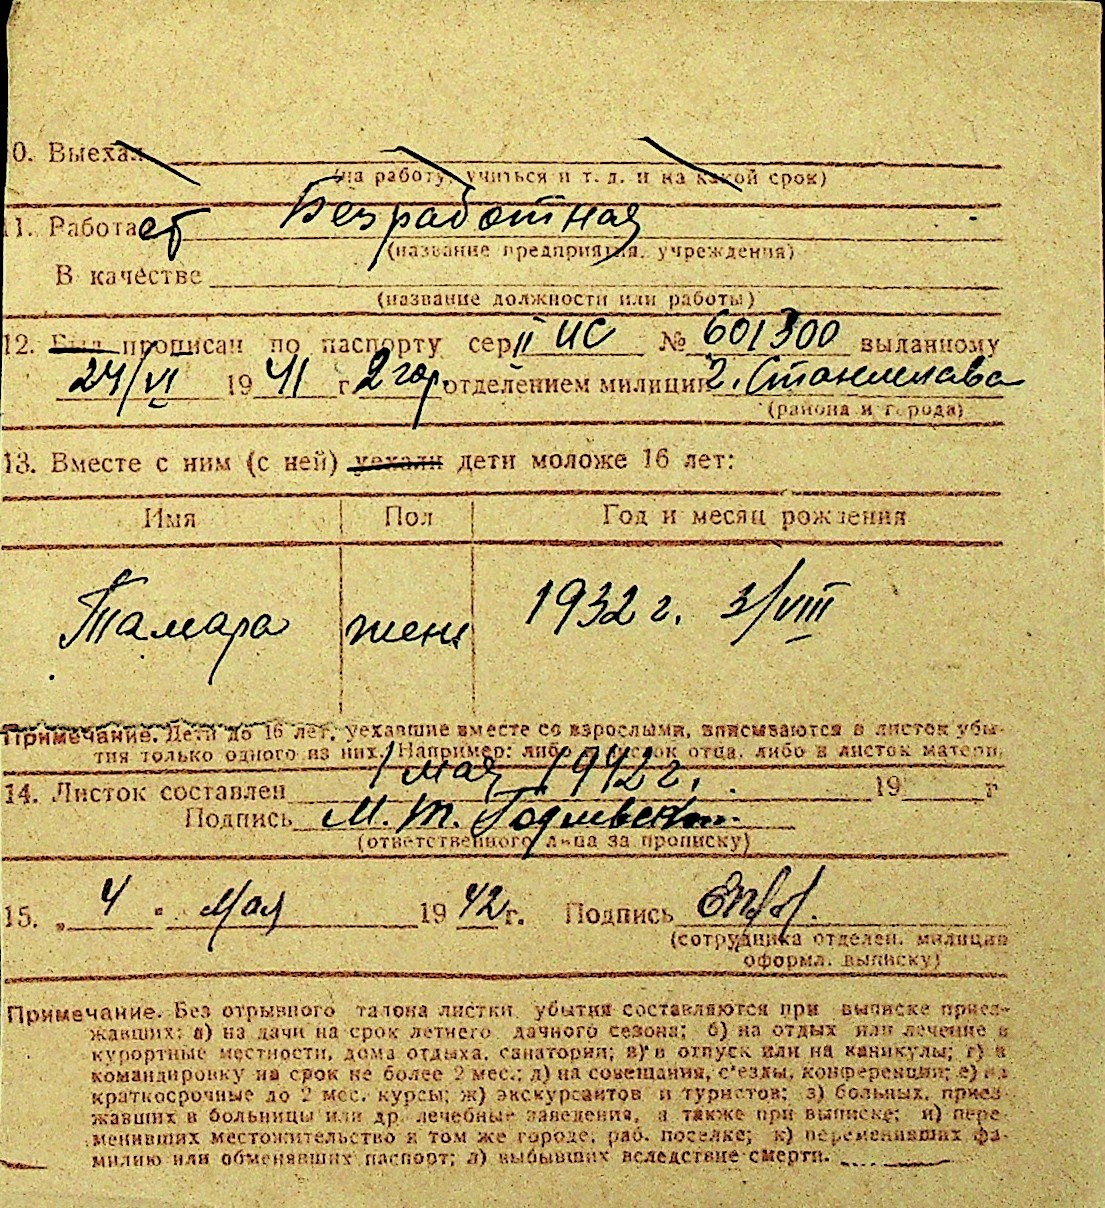 0. Выехал
(на работу, учиться и т. д. и на какой срок)
1. Работает Безработная
(название предприятия, учреждения)
В качестве
(название должности или работы)
12. Был прописан по паспорту сер. II ИС № 601300 выданному
24/VI 1941 г. 2 гор. отделением милиции г. Станислава
(района и города)
13. Вместе с ним (с ней) уехали дети моложе 16 лет:
Имя Пол Год и месяц рождения
Тамара жен 1932 г. 3/VIII
Примечание. Дети до 16 лет, уехавшие вместе со взрослыми, вписываются в листок убы-
тия только одного из них. Например: либо в листок отца, либо в листок матери.
14. Листок составлен 1 мая 1942 г. 19 г
Подпись М. Т.
(ответственного лица за прописку)
15. „ 4 " мая 1942 г. Подпись
(сотрудника отделен. милиции
оформл. выписку)
Примечание. Без отрывного талона листки убытия составляются при выписке приез-
жавших: а) на дачи на срок летнего дачного сезона; б) на отдых или лечение в
курортные местности, дома отдыха, санатории; в) в отпуск или на каникулы; г) в
командировку на срок не более 2 мес.; д) на совещания, с'езды, конференции; е) на
краткосрочные до 2 мес. курсы; ж) экскурсантов и туристов; з) больных, приез-
жавших в больницы или др. лечебные заведения, а также при выписке; и) пере-
менивших местожительство в том же городе, раб. поселке; к) переменивших фа-
милию или обменявших паспорт; л) выбывших вследствие смерти.